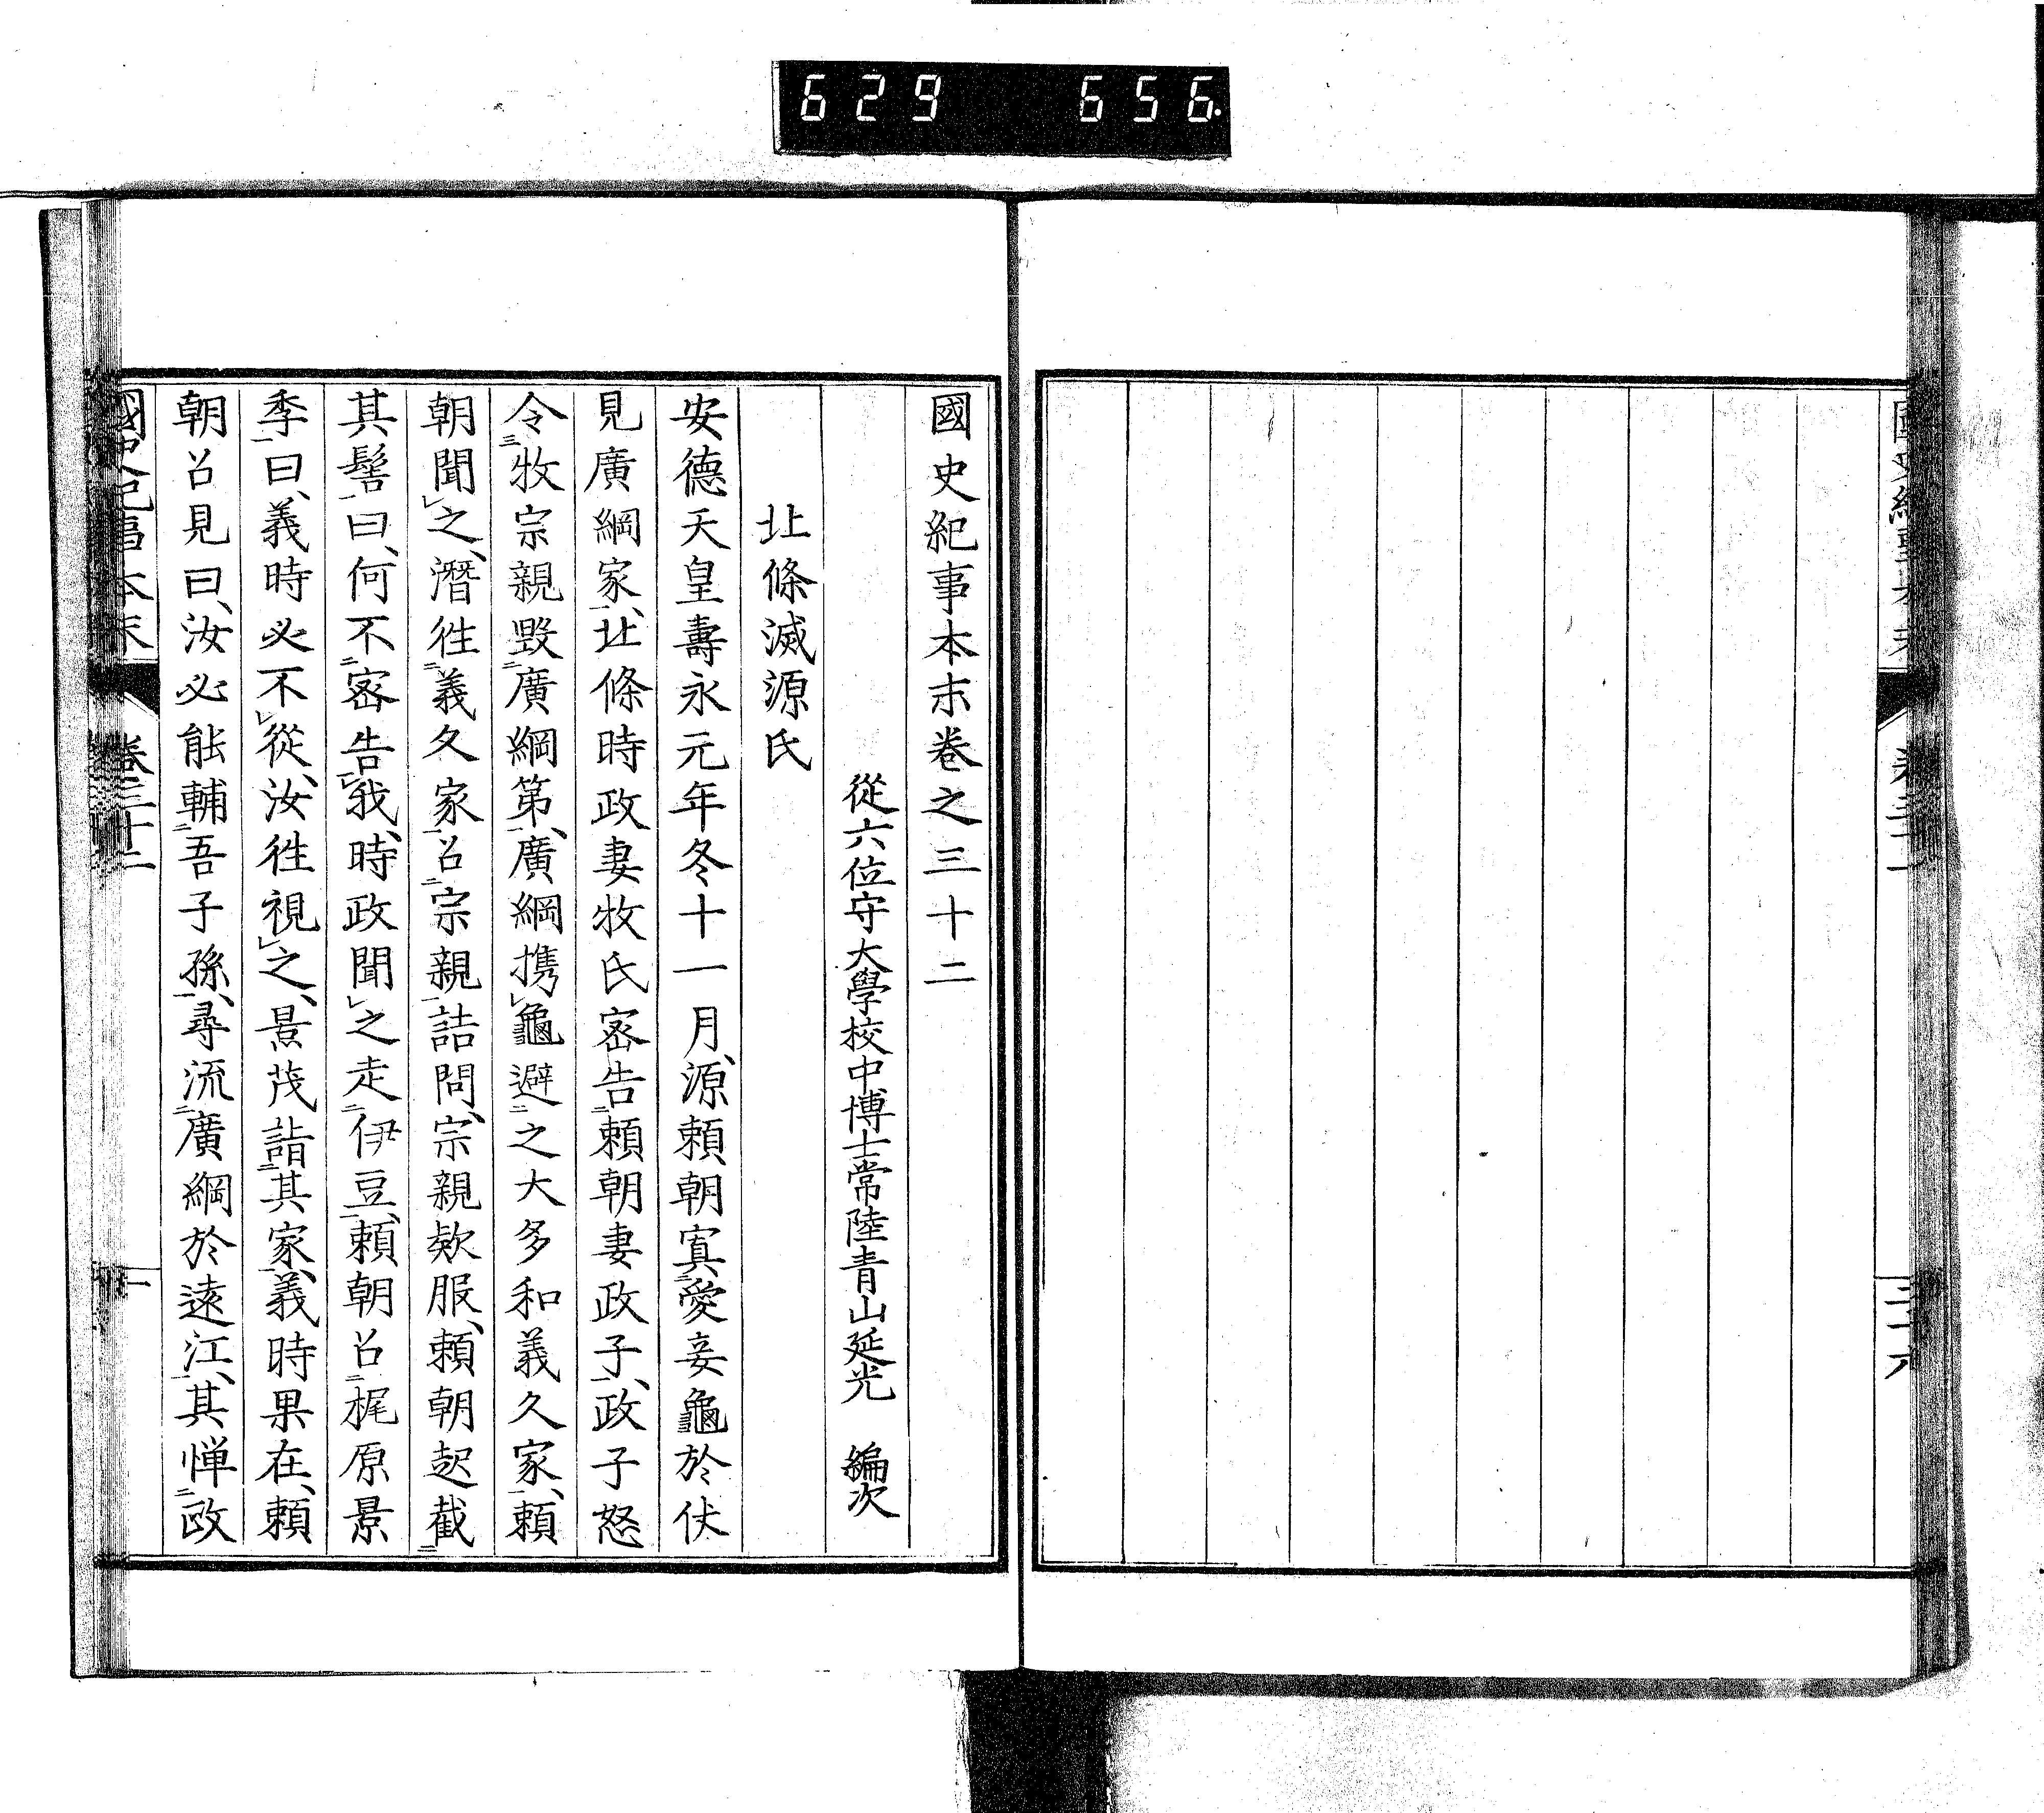 629 656.
國史紀事本末 卷三十一 三十六
國史紀事本末卷之三十二
從六位守大學校中博士常陸青山延光 編次
北條滅源氏
安德天皇壽永元年冬十一月、源賴朝寘㆓愛妾龜於伏
見廣綱家㆒、北條時政妻牧氏密告㆓賴朝妻政子㆒、政子怒
令㆘牧宗親毀㆗廣綱第㆖、廣綱携㆑龜避㆓之大多和義久家㆒、賴
朝聞㆑之、潛徃㆓義久家㆒、召㆓宗親㆒詰問、宗親欵服、賴朝起截㆓
其髻㆒曰、何不㆓密告㆒㆑我、時政聞㆑之走㆓伊豆㆒、賴朝召㆓梶原景
季㆒曰、義時必不㆑從、汝徃視㆑之、景茂詣㆓其家㆒、義時果在、賴
朝召見曰、汝必能輔㆓吾子孫㆒、尋流㆓廣綱於遠江㆒、其憚㆓政
國史紀事本末 卷三十二 一